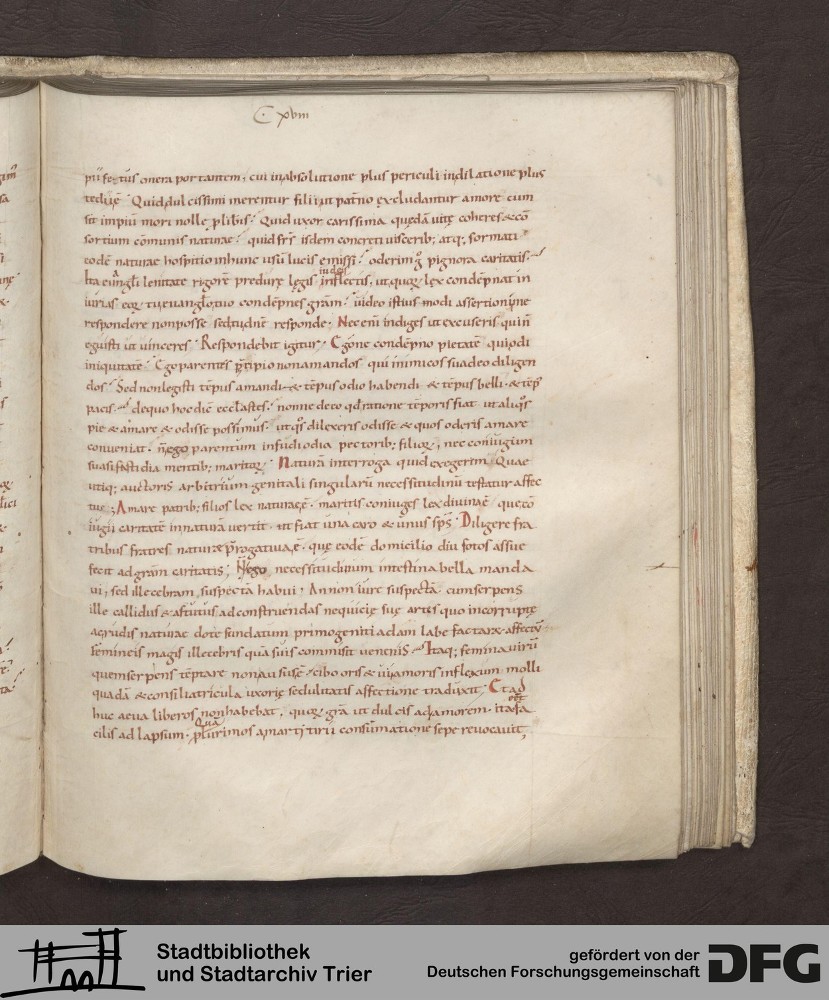 C· xviii
onera portantem, cui in absolutione plus periculi in dilatione plus
Quid dulcissimi merentur filii ut patrio excludantur amore cum
sit impiū mori nolle ꝓ libis. Quid uxor carissima quedā vitę coheres & cō
sortium cōmunis naturae? quid frs̄ isdem concreti visceribꝫ atqꝫ formati
eodē naturae hospitio in hunc usū lucis emissi? pignora caritatis.
Ita evangl̄i lenitate rigorē predurę legis iudeis inflectis, ut quoꝝ lex condēpnat in
iurias eoꝝ tu evangl̄io tuo condēpnes gram̄? video istius modi assertioni me
respondere non posse sed tu dn̄e responde. Nec enī indiges ut excuseris qui n̄
eguisti ut vinceres. Respondebit igitur. Egone condēpno pietatē qui odi
iniquitatē? Ego parentes non amandos qui inimicos suadeo diligen
dos? Sed non legisti tēpus amandi & tēpus odio habendi & tēpus belli & tēp
pacis. de quo hoc die ecclesiastes? nonne de eo qd̄ ratione tēporis fiat ut aliqs
pie & amare & odisse possimus. ut qs̄ dilexeris odisse & quos oderis amare
conveniat. n̄ ego parentum infudi odia pectoribꝫ filioꝝ, nec coniugium
suasi fastidia mentibꝫ maritoꝝ. Naturā interroga quid exegerim. Quae
utiqꝫ auctoris arbitrium genitali singularū necessitudinū testatur affec
tu; Amare patribꝫ filios lex naturae ē. maritis coniuges lex divinae, que cō
iugii caritatē in naturā vertit. ut fiat una caro & unus sp̄s. Diligere fra
tribus fratres naturae p̄rogativa ē. quę eodē domicilio diu fotos assue
fecit ad gram̄ caritatis; N̄ ego necessitudinum intestina bella manda
vi, sed illecebram suspectā habui. An non iure suspecta. cum serpens
ille callidus & astutus ad construendas nequicię suę artes quo incorruptę
ac rudis naturae dote fundatum primogeniti adam labefactarx affectū
femineis magis illecebris quā suis commisit venenis. Itaqꝫ femina virū
quem serpens tēptare non ausus ē cibo oris & vi amoris inflexum molli
quadā & consiliatricula uxorię sedulitatis affectione traduxit. Et ad
huc aeva liberos non habebat, quoꝝ gra ut dulcis ad amorem. ita ēēt fa
cilis ad lapsum. Quā plurimos a martirii consūmatione sepe revocavit,
Stadtbibliothek
und Stadtarchiv Trier
gefördert von der
Deutschen Forschungsgemeinschaft
DFG